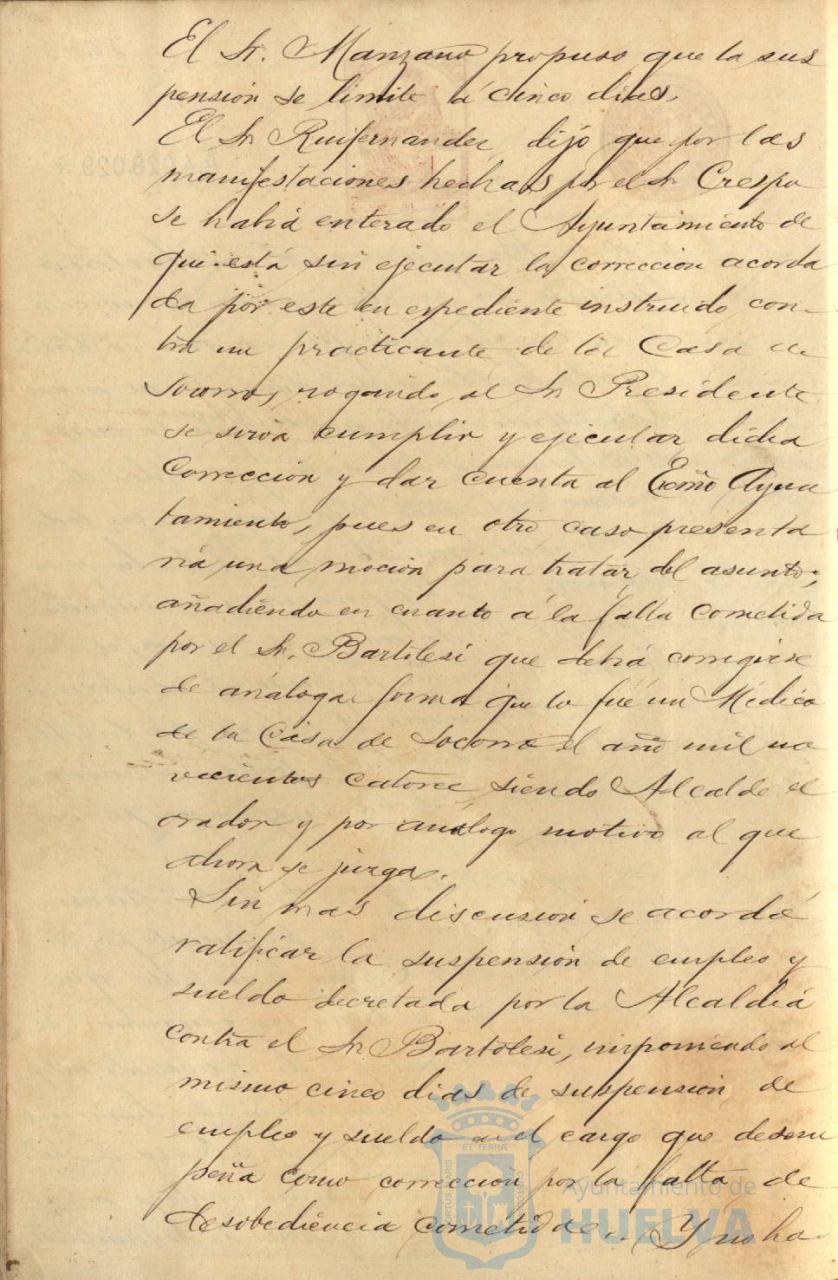 El Sr. Manzano propuso que la sus
pensión se limite á cinco dias.
El Sr Ruifernandez dijo que por las
manifestaciones hechas por el Sr Crespo
se habiá enterado el Ayuntamiento de
que está sin ejecutar la correccion acorda
da por este en expediente instruido con-
tra un practicante de la Casa de
Socorro, rogando al Sr Presidente
se sirva cumplir y ejecutar dicha
Corrección y dar cuenta al Exmo Ayun
tamiento, pues en otro caso presenta
ria una moción para tratar del asunto;
añadiendo en cuanto á la falta cometida
por el Sr. Bartolesi que debiá corregirse
de análoga forma que lo fué un Médico
de la Casa de Socorro el año mil no
vecientos catorce siendo Alcalde el
orador y por análogo motivo al que
ahora se juzga.
Sin mas discusión se acordó
ratificar la suspensión de empleo y
sueldo decretada por la Alcaldiá
contra el Sr. Bartolesi, imponiendo al
mismo cinco dias de suspensión de
empleo y sueldo en el cargo que desem
peña como corrección por la falta de
desobediencia cometida.. Y no ha-
Ayuntamiento de
HUELVA